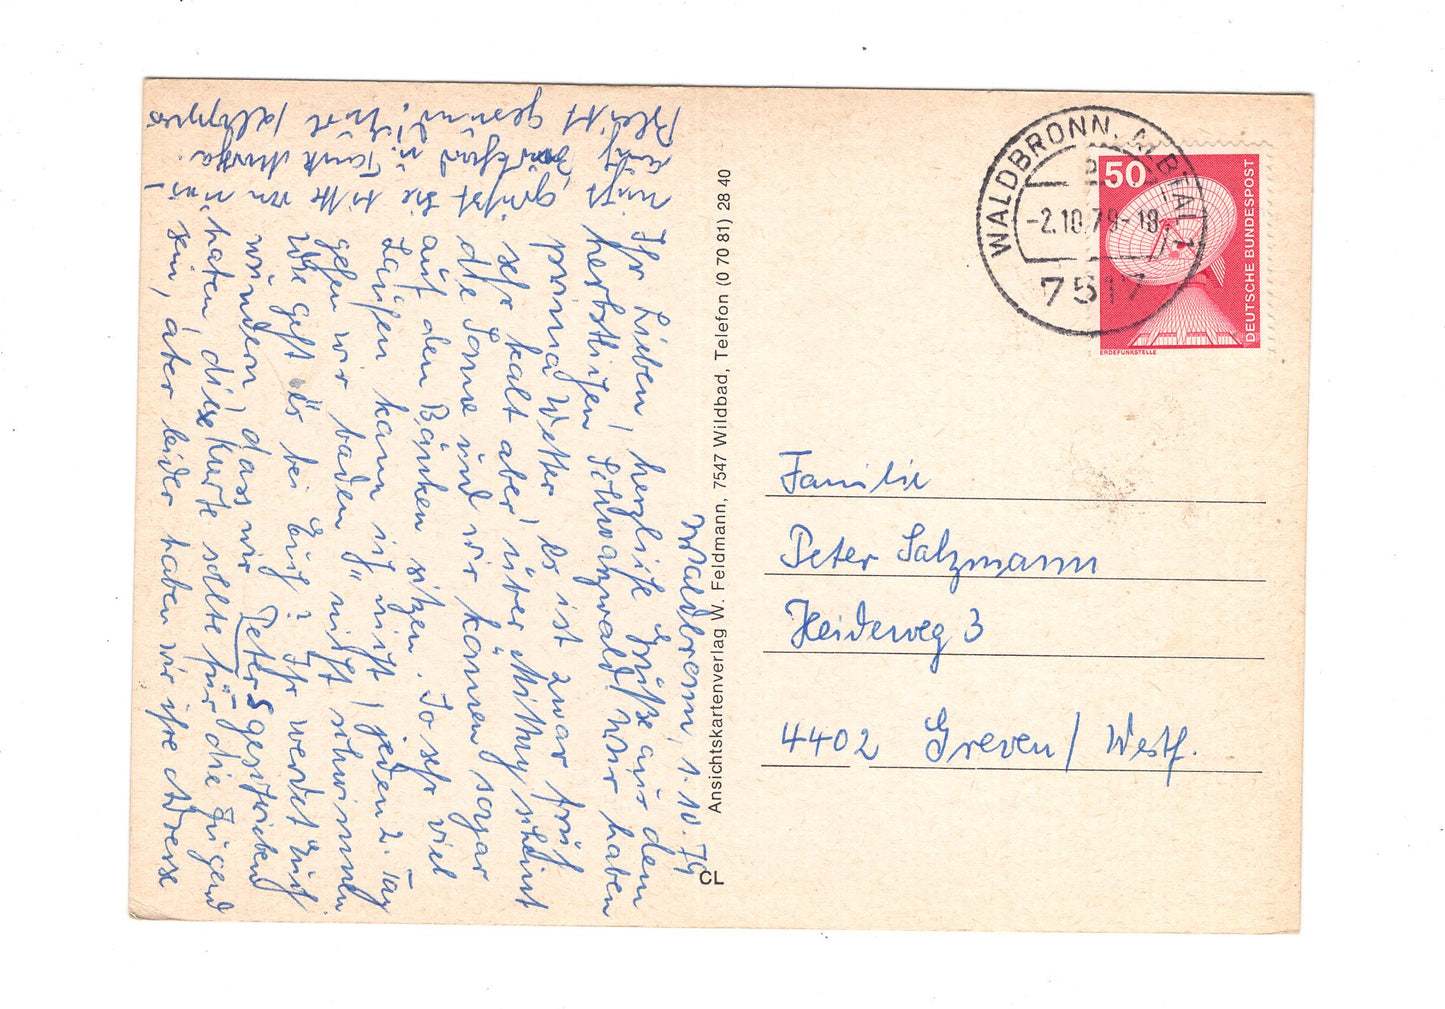 Waldbronn, 1.10.79
Ihr Lieben, herzliche Grüße aus dem
herbstlichen Schwarzwald. Wir haben
prima Wetter, es ist zwar früh
sehr kalt aber über Mittag scheint
die Sonne und wir können sogar
auf den Bänken sitzen. So sehr viel
Laufen kann ich nicht, jeden 2. Tag
gehen wir baden, nicht schwimmen
Wie geht es bei Euch? Ihr werdet Euch
wundern, dass wir Peters geschrieben
haben, diese Karte sollte für die Jugend
sein, aber leider haben wir ihre Adresse
nicht. grüßt sie bitte von uns,
auch u. Tante Martha.
Bleibt gesund,
Ansichtskartenverlag W. Feldmann, 7547 Wildbad, Telefon (0 70 81) 28 40
CL
WALDBRONN, ALBTAL 1
-2.10.79-18
7517
50
DEUTSCHE BUNDESPOST
ERDEFUNKSTELLE
Familie
Peter Salzmann
Heideweg 3
4402 Greven / Westf.